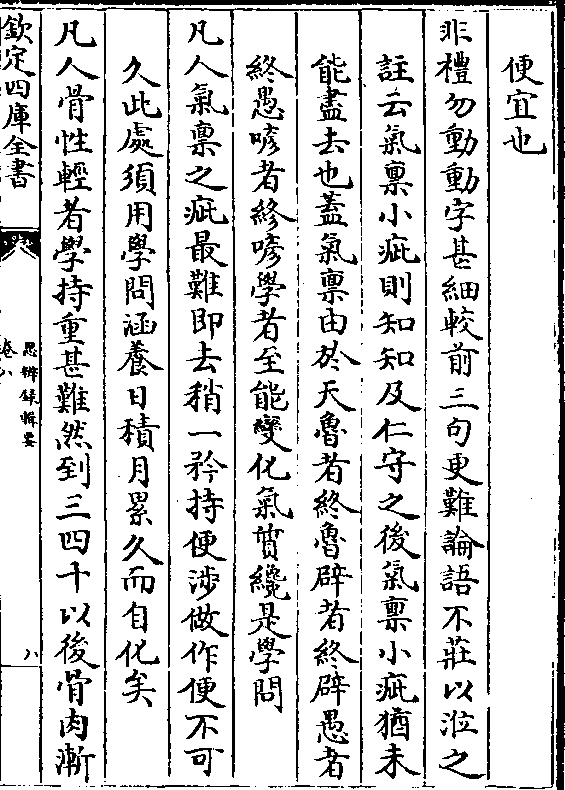 便宜也
非禮勿動動字甚細較前三句更難論語不莊以涖之
註云氣禀小疵則知知及仁守之後氣禀小疵猶未
能盡去也蓋氣禀由於天魯者終魯辟者終辟愚者
終愚喭者終喭學者至能變化氣質纔是學問
凡人氣禀之疵最難即去稍一矜持便涉做作便不可
久此處須用學問涵養日積月累久而自化矣
凡人骨性輕者學持重甚難然到三四十以後骨肉漸
欽定四庫全書
思辨録輯要
卷八
八